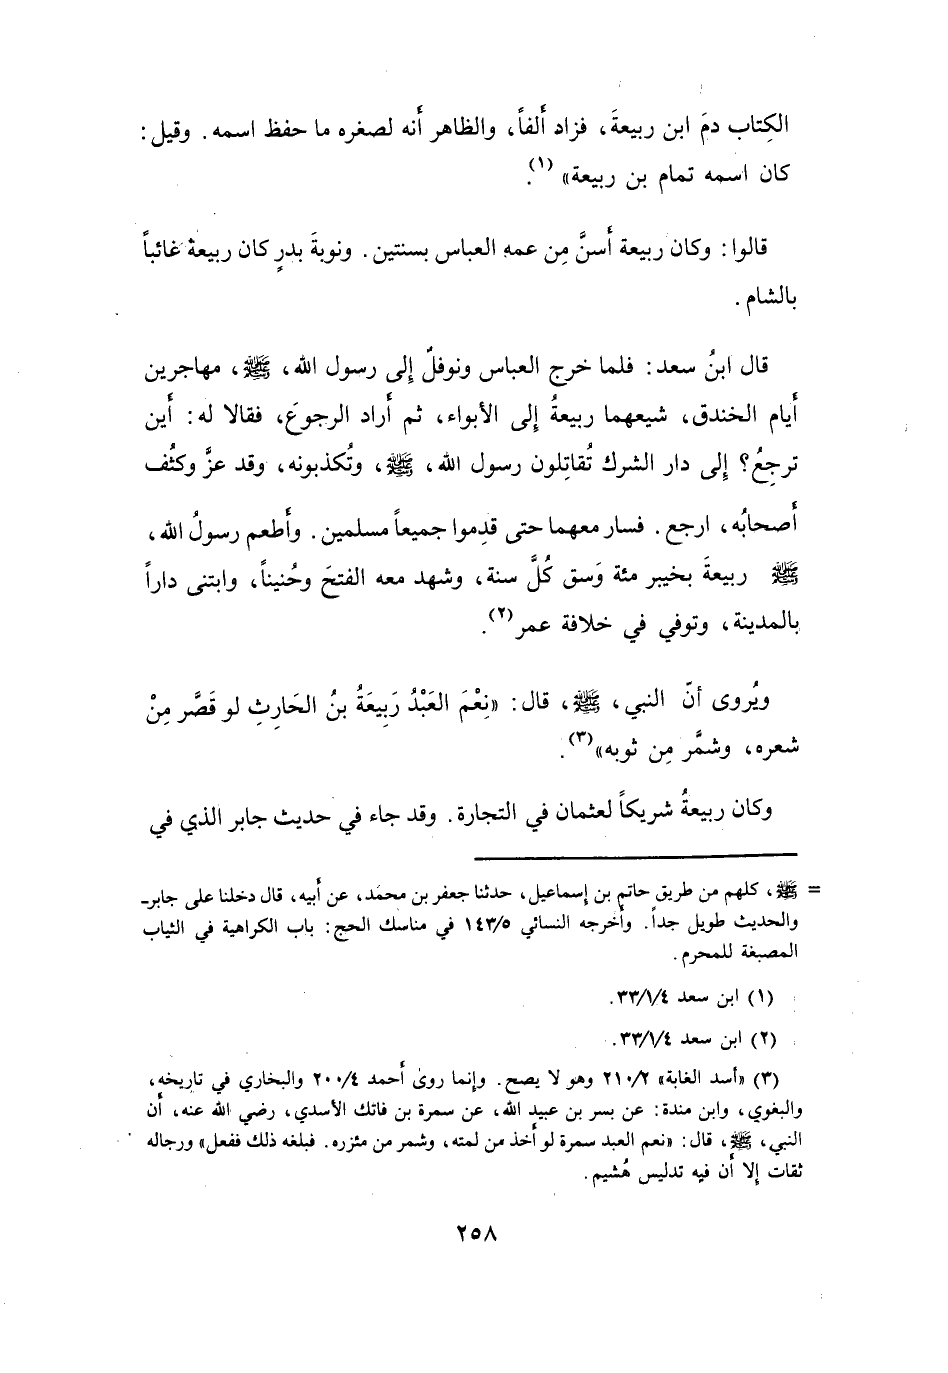 الكِتاب دمَ ابن ربيعةَ، فزاد أَلفاً، والظاهر أَنه لصغره ما حفظ اسمه. وقيل:
كان اسمه تمام بن ربيعة»(١).
قالوا: وكان ربيعة أَسنَّ مِن عمه العباس بسنتين. ونوبةَ بدرٍ كان ربيعة غائباً
بالشام.
قال ابنُ سعد: فلما خرج العباس ونوفلٌ إِلى رسول الله، ﷺ، مهاجرين
أَيام الخندق، شيعهما ربيعةُ إِلى الأبواء، ثم أَراد الرجوعَ، فقالا له: أَين
ترجِعُ؟ إِلى دار الشرك تُقاتِلون رسول الله، ﷺ، وتُكذبونه، وقد عزَّ وكثُف
أَصحابُه، ارجع. فسار معهما حتى قدِموا جميعاً مسلمين. وأَطعم رسولُ الله،
ﷺ ربيعةَ بخيبر مئة وَسق كُلَّ سنة، وشهد معه الفتحَ وحُنيناً، وابتنى داراً
بالمدينة، وتوفي في خلافة عمر(٢).
ويُروى أنّ النبي، ﷺ، قال: «نِعْمَ العَبْدُ رَبِيعَةُ بنُ الحَارِثِ لو قَصَّر مِنْ
شعره، وشمَّر مِن ثوبه»(٣).
وكان ربيعةُ شريكاً لعثمان في التجارة. وقد جاء في حديث جابر الذي في
= ﷺ، كلهم من طريق حاتم بن إسماعيل، حدثنا جعفر بن محمد، عن أَبيه، قال دخلنا على جابر-
والحديث طويل جداً. وأخرجه النسائي ١٤٣/٥ في مناسك الحج: باب الكراهية في الثياب
المصبغة للمحرم.
(١) ابن سعد ٣٣/١/٤.
(٢) ابن سعد ٣٣/١/٤.
(٣) «أسد الغابة» ٢١٠/٢ وهو لا يصح. وإنما روى أَحمد ٢٠٠/٤ والبخاري في تاريخه،
والبغوي، وابن مندة: عن بسر بن عبيد الله، عن سمرة بن فاتك الأسدي، رضي الله عنه، أَن
النبي، ﷺ، قال: «نعم العبد سمرة لو أَخذ من لمته، وشمر من مئزره. فبلغه ذلك ففعل» ورجاله
ثقات إِلا أَن فيه تدليس هُشيم.
٢٥٨